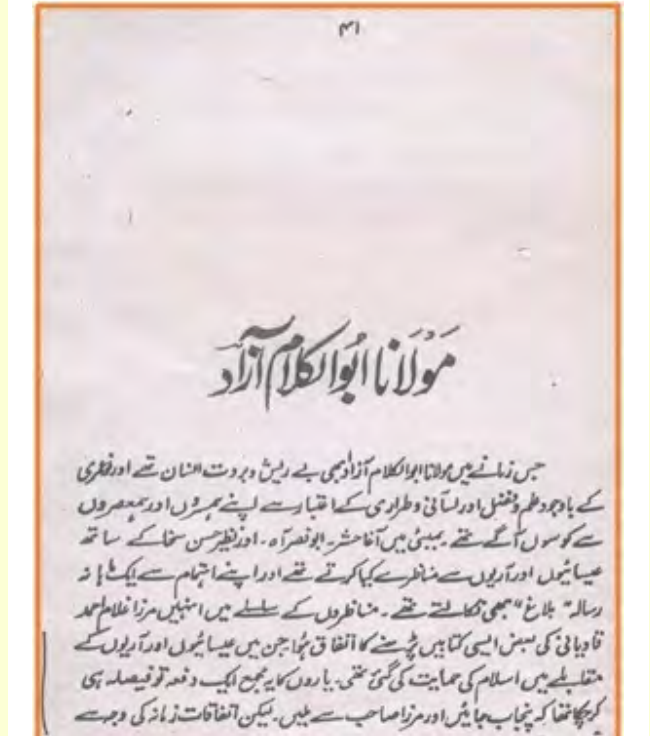 ۴۱
مَولَانا ابُوالکلام آزاد
جس زمانے میں مولانا ابوالکلام آزاد بھی بے ریش و بروت انسان تھے اور نوعمری
کے باوجود علم و فضل اور لسانی و طراری کے اعتبار سے اپنے ہمسروں اور ہمعصروں
سے کوسوں آگے تھے۔ بمبئی میں آغا حشر۔ ابونصر آہ۔ اور نظیر حسن سخا کے ساتھ
عیسائیوں اور آریوں سے مناظرے کیا کرتے تھے اور اپنے اہتمام سے ایک ماہانہ
رسالہ "بلاغ" بھی نکالتے تھے۔ مناظروں کے سلسلے میں انہیں مرزا غلام احمد
قادیانی کی بعض ایسی کتابیں پڑھنے کا اتفاق ہوا جن میں عیسائیوں اور آریوں کے
مقابلے میں اسلام کی حمایت کی گئی تھی۔ یاروں کا یہ مجمع ایک دفعہ تو فیصلہ ہی
کر چکا تھا کہ پنجاب جائیں اور مرزا صاحب سے ملیں۔ لیکن اتفاقات زمانہ کی وجہ سے